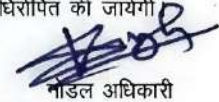 धिरोपित की जायेगी।
नोडल अधिकारी